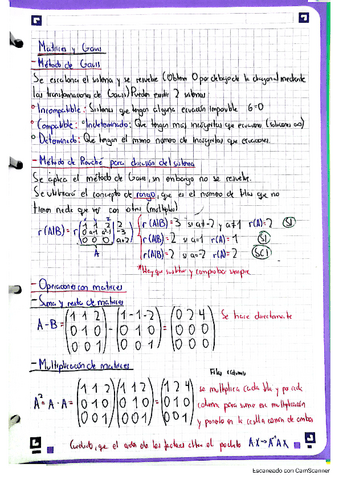 Matrices y Gauss
- Método de Gauss
Se escalona el sistema y se resuelve (Obtener 0 por debajo de la diagonal mediante
las transformaciones de Gauss) Pueden existir 2 sistemas
* Incompatible: Sistemas que tengan alguna ecuación imposible 6=0
* Compatible: * Indeterminado: Que tengan más incógnitas que ecuaciones (soluciones ∞)
* Determinado: Que tengan el mismo número de incógnitas que ecuaciones.
- Método de Rouché para discusión del sistema
Se aplica el método de Gauss, sin embargo no se resuelve.
Se utilizará el concepto de rango, que es el número de filas que no
tienen nada que ver con otras (múltiplo)
r(A|B) = 3 si a≠-2 y a≠1 r(A)=2 SI
r(A|B) = 2 si a=1 r(A)=1 SI
r(A|B) = 2 si a=-2 r(A)=2 SCI
A
* Hay que sustituir y comprobar siempre
- Operaciones con matrices
- Suma y resta de matrices
A-B = (1 1 2 / 0 1 0 / 0 0 1) - (1 -1 -2 / 0 1 0 / 0 0 1) = (0 2 4 / 0 0 0 / 0 0 0) Se hace directamente
- Multiplicación de matrices
Filas columnas
A² = A · A = (1 1 2 / 0 1 0 / 0 0 1) (1 1 2 / 0 1 0 / 0 0 1) = (1 2 4 / 0 1 0 / 0 0 1) se multiplica cada fila y por cada
columna, para sumar su multiplicación
y ponerlo en la casilla común de ambas
Cuidado, que el orden de los factores altera el producto
Escaneado con CamScanner